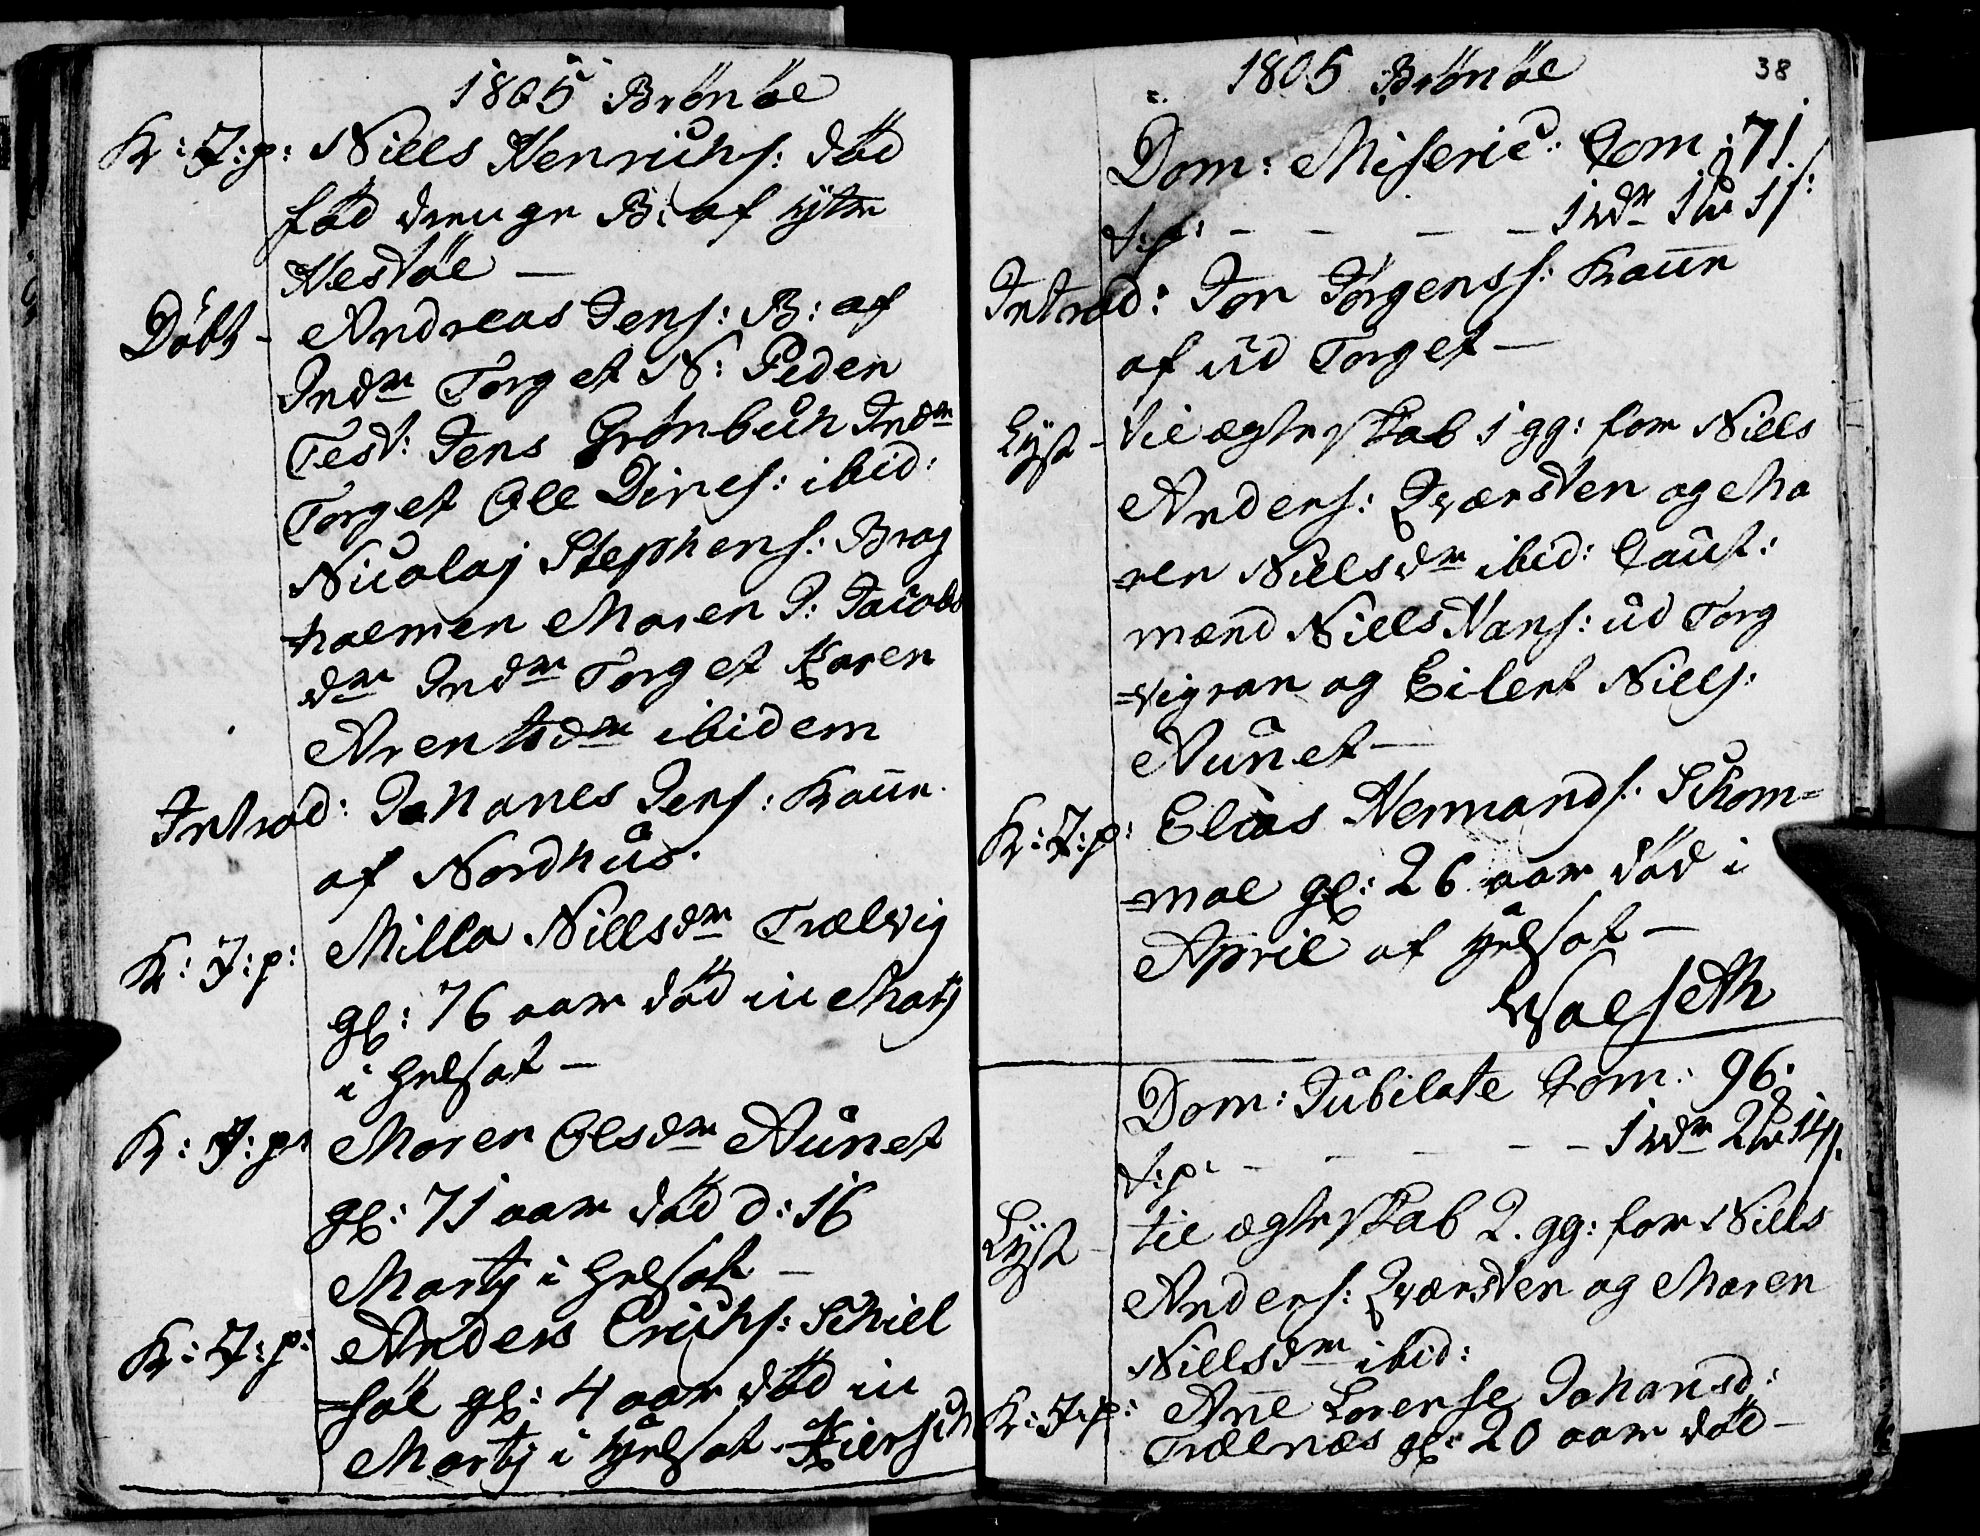 1805 Brönöe
K: J: p: Niels Henrichs: död
föd drenge B: af ytre
Hestöe —
Döbt - Andreas Jens: B: af
Indr Torget N: Peder
Test: Jens Grönbech Indr
Torget Ole Dines: ibid:
Nicolaj Stephens: Brag
=holmen Maren J: Jacobs
dr Indr Torget Karen
Arentsdr ibidem
Introd: Johanes Jens: Kone
af Nordhus.
K: J: p: Milla Nielsdr Trælvig
gl: 76 aar död in Martj
i
K: J: p: Maren Olsdr Aunet
gl: 71 aar död d: 16
Martj i
K: J: p: Anders Erichs: Schiel
=söe gl: 4 aar död in
Martj i
1805 Brönöe
38
Dom: Miseric: Com: 71.
T: p: - - - - 1 rdr 1 1 s:
Introd: Jon Jörgens: Kone
af ud Torget —
Lyst - til ægteskab 1 gg: for Niels
Anders: Qværsten og Ma
=ren Nielsdr ibid: Caut:
mænd Niels Hans: ud Torg
og Eilert Niels:
Aunet —
K: J: p: Elias Hermands: Schom=
=moe gl: 26 aar död i
April af
Walseth
Dom: Jubilate Com: 96.
T: p: - - - - - 1 rdr 2 14 s.
Lyst - til ægteskab 2. gg: for Niels
Anders: Qværsten og Maren
Nielsdr ibid:
K: J: p: Ane Lorense Johansd:
Trælnæs gl: 20 aar död -